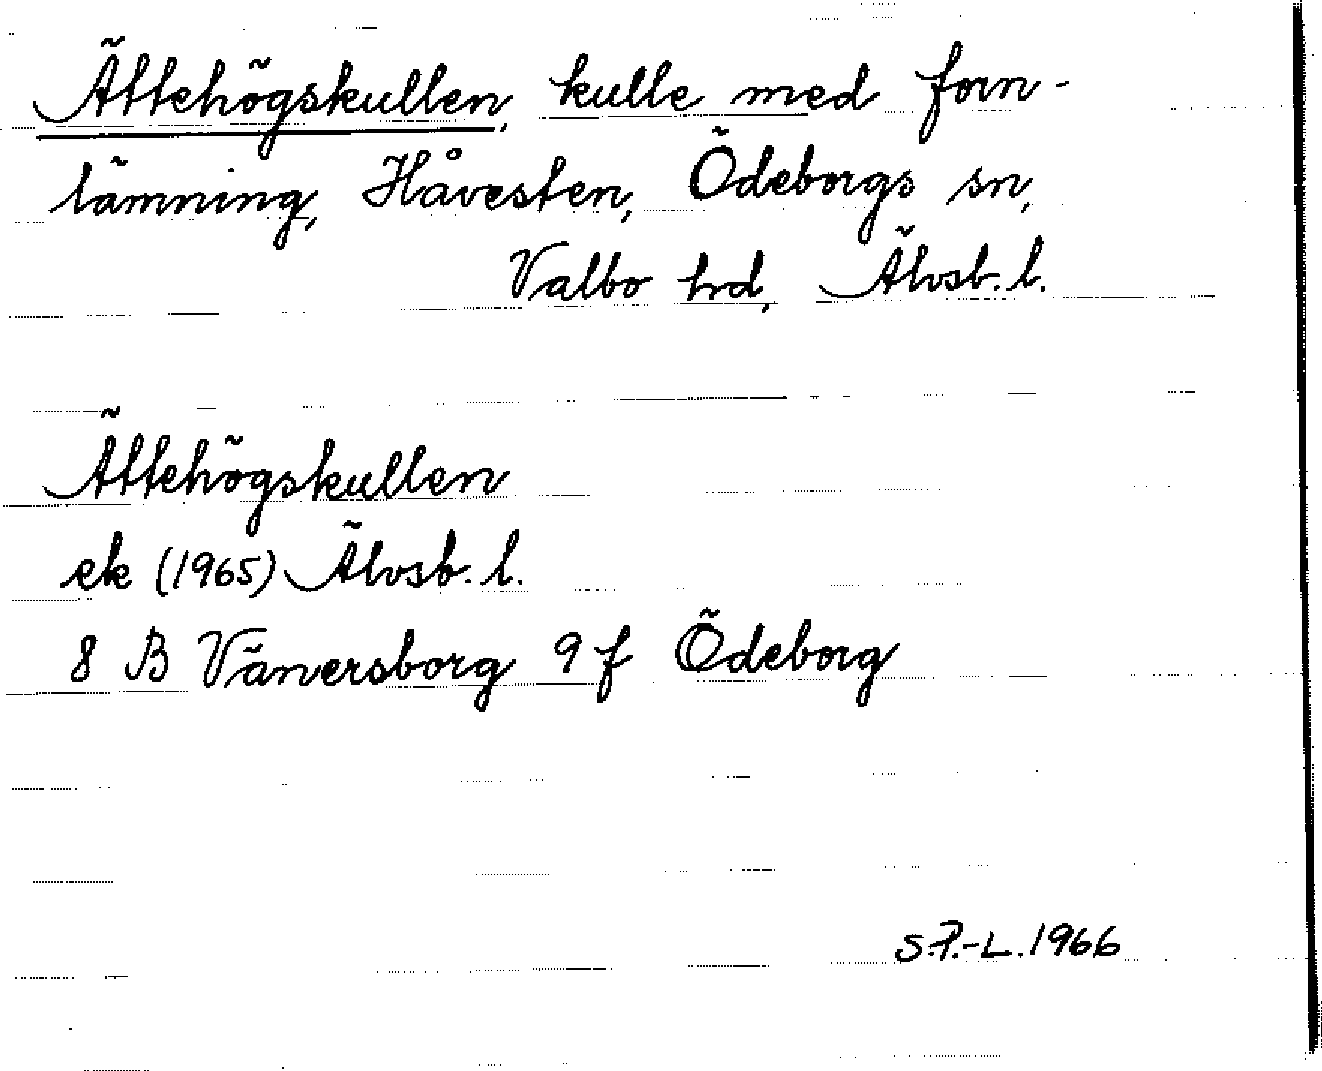 Ättehögskullen, kulle med forn-
lämning, Håvesten, Ödeborgs sn,
Valbo hd, Älvsb. l.
Ättehögskullen
ek (1965) Älvsb. l.
8 B Vänersborg 9 f Ödeborg
S.P.-L. 1966